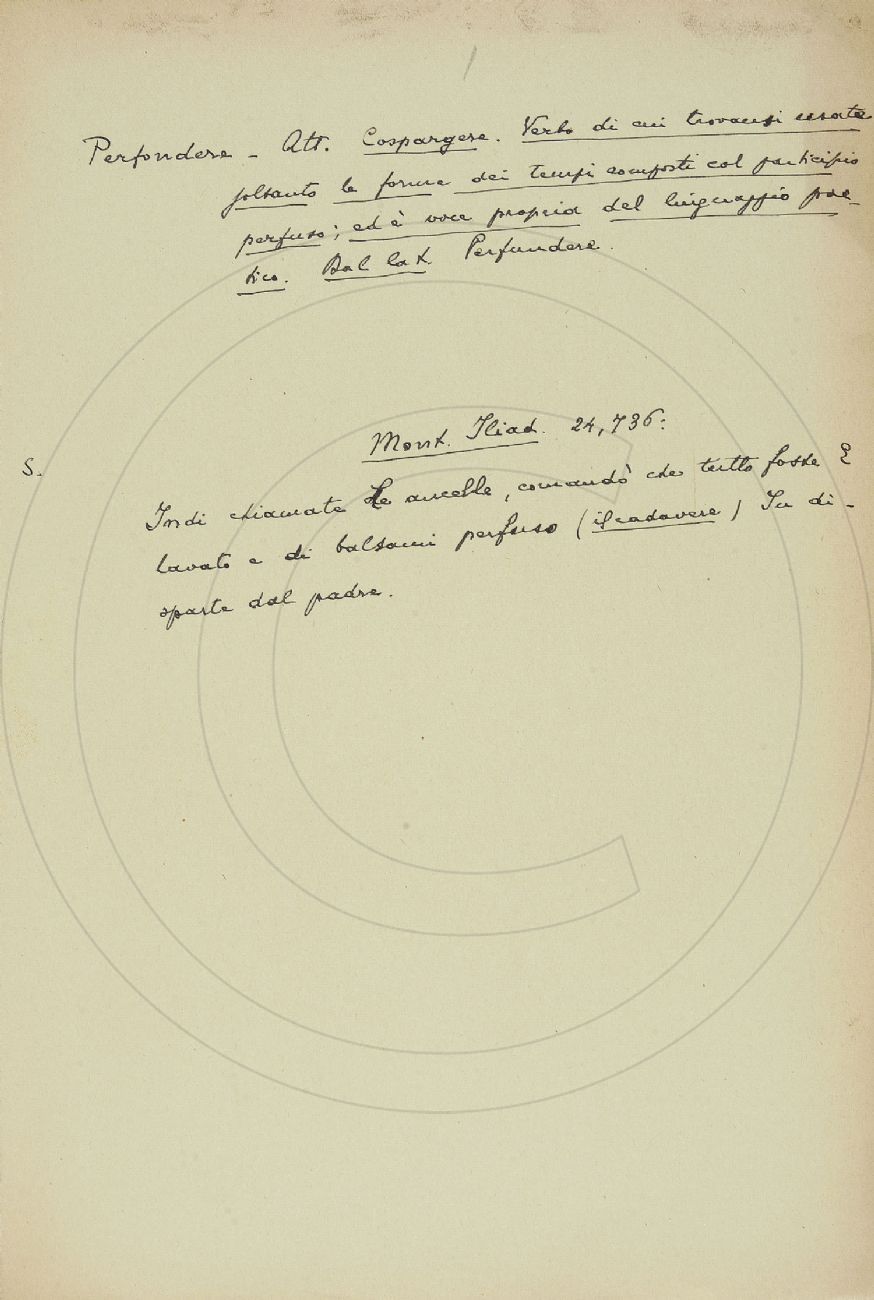 Perfondere - Att. Cospargere. Verbo di cui trovansi usate
soltanto le forme dei tempi composti col participio
perfuso; ed è voce propria del linguaggio poe-
tico. Dal lat. Perfundere.
Mont. Iliad. 24,736:
S.
Indi chiamate le ancelle, comandò che tutto fosse E
lavato e di balsami perfuso (il cadavere) In di-
sparte dal padre.